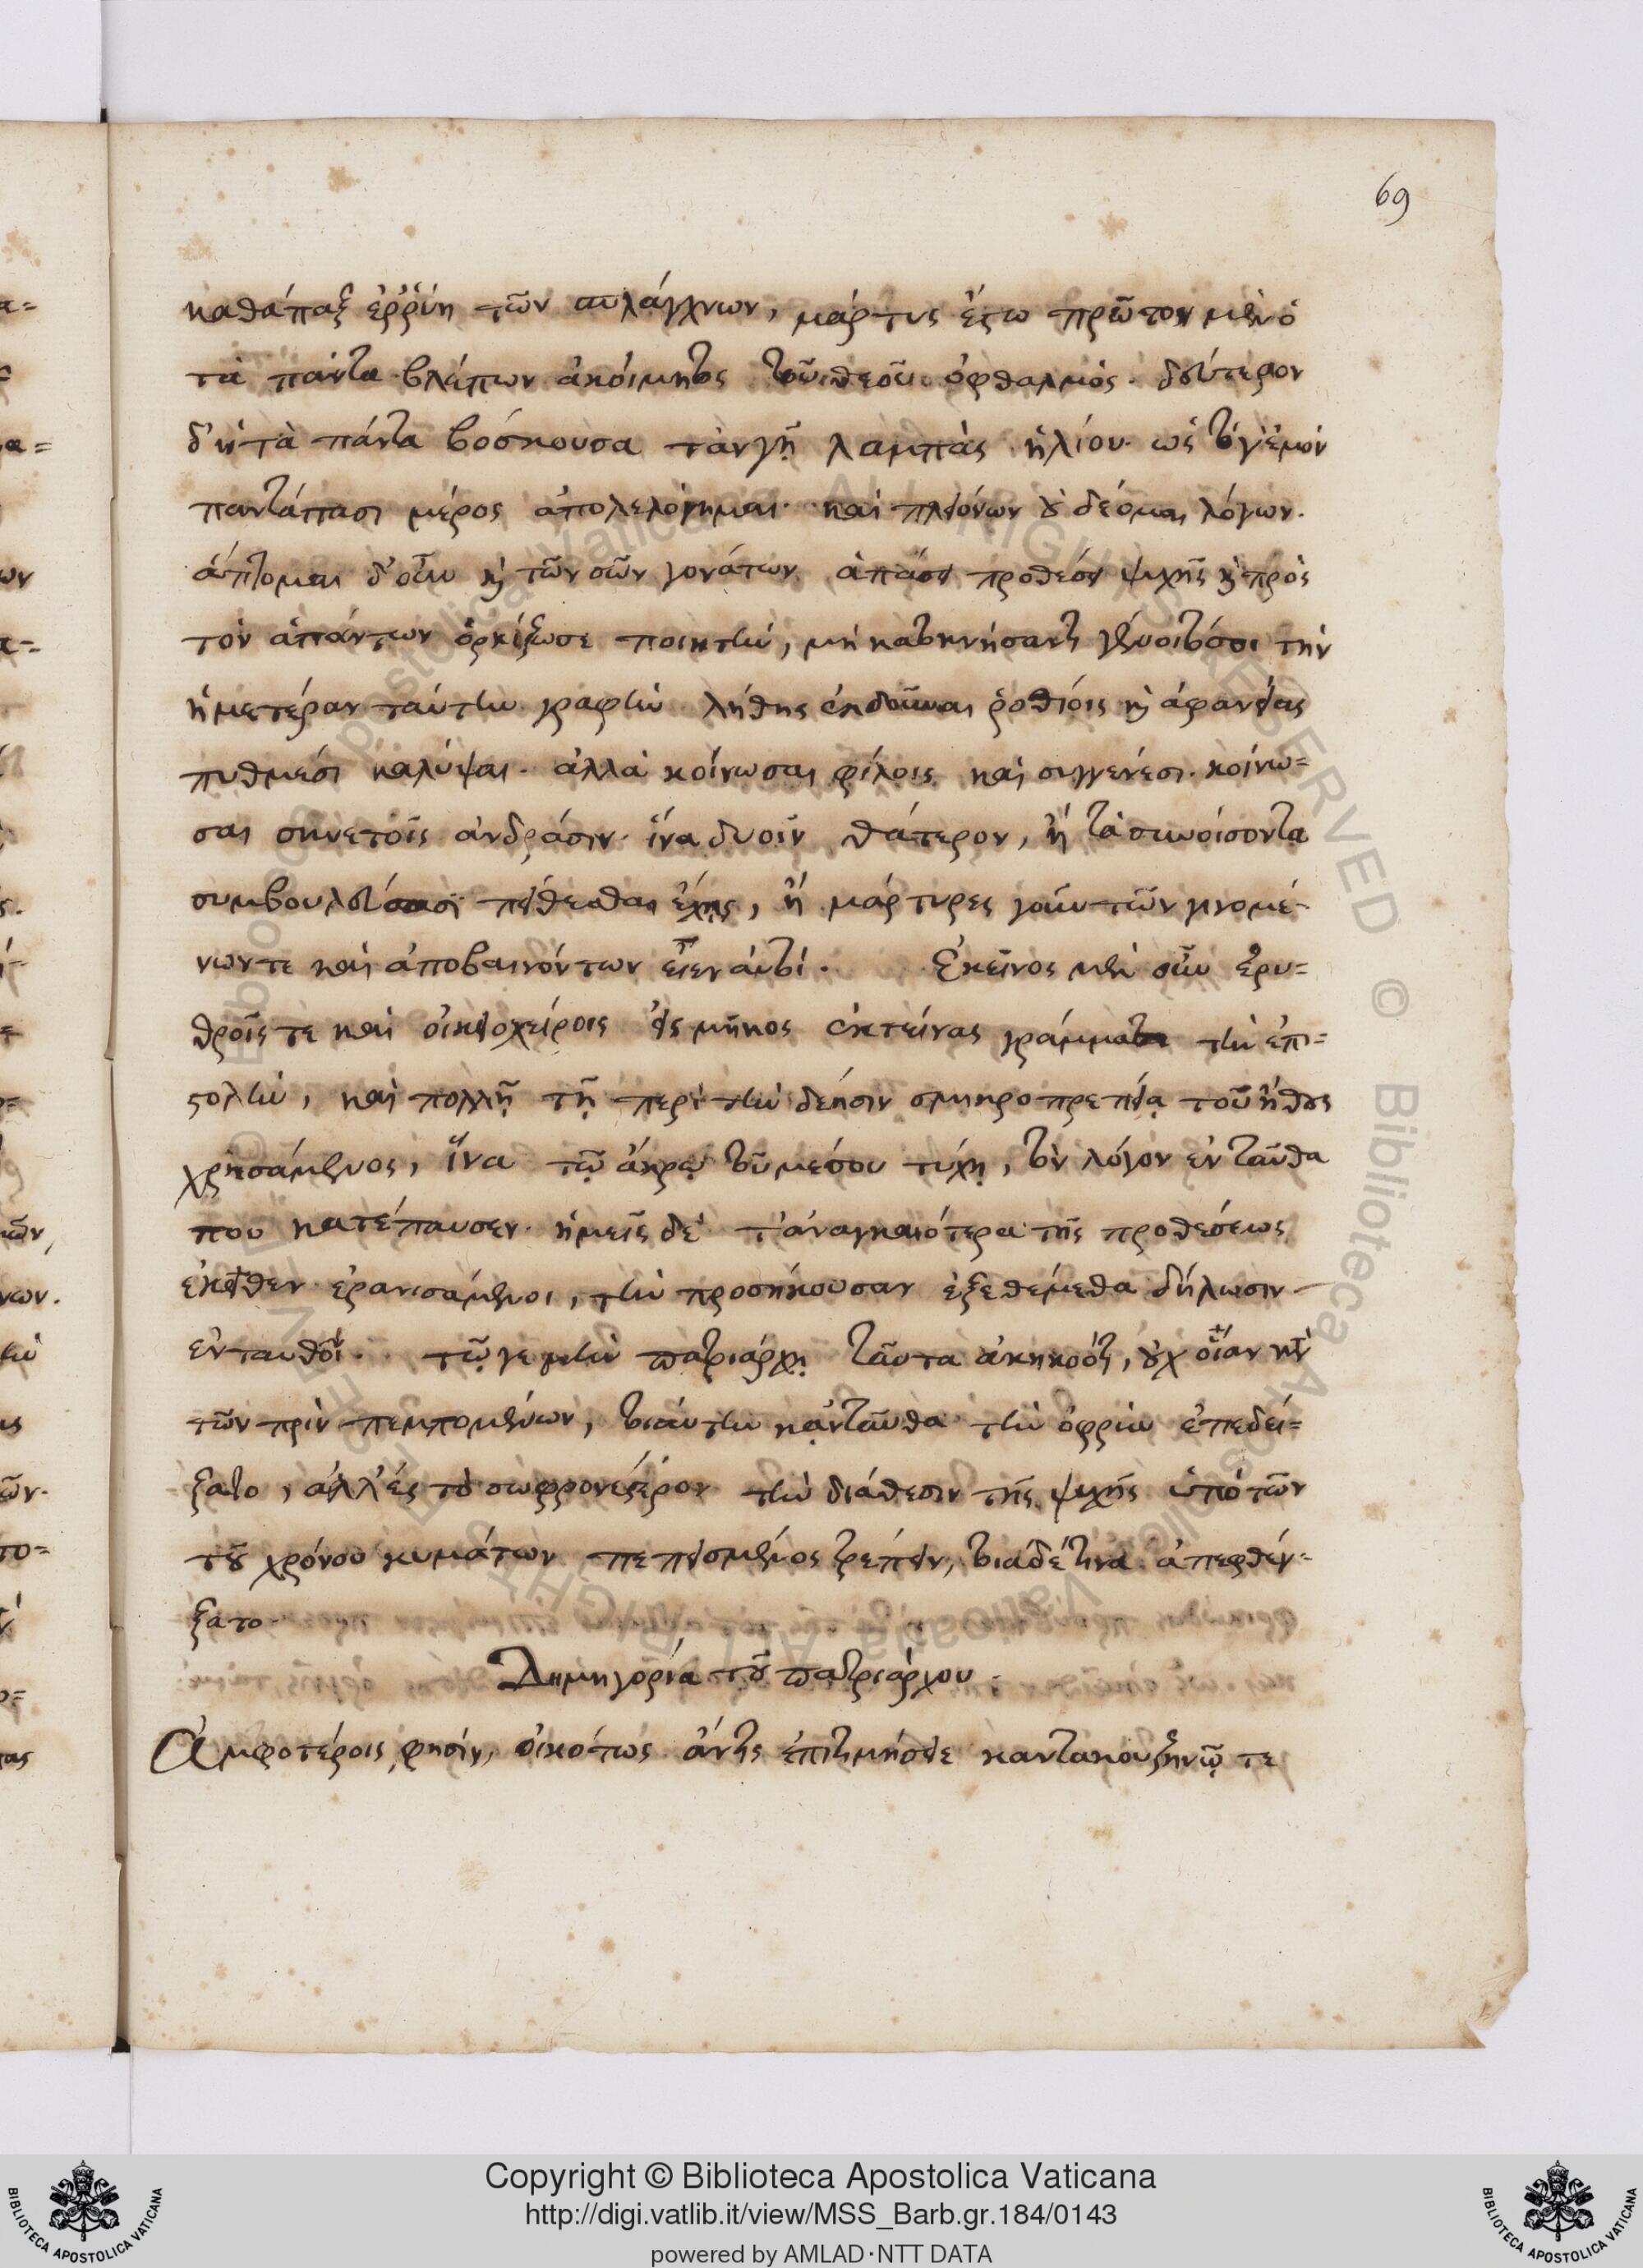 69
καθάπαξ ἐῤῥύη τῶν σπλάγχνων, μάρτυς ἔστω πρῶτον μὲν ὁ
τὰ πάντα βλέπων ἀκοίμητος τοῦ θεοῦ ὀφθαλμός. δεύτερον
δ' ἡ τὰ πάντα βόσκουσα τὰν γῇ λαμπὰς ἡλίου. ὡς τό γ' ἐμὸν
παντάπασι μέρος ἀπολελόγημαι. καὶ πλειόνων οὐ δέομαι λόγων.
ἅπτομαι δ' οὖν καὶ τῶν σῶν γονάτων ἁπάσῃ προθέσει ψυχῆς καὶ πρὸς
τὸν ἁπάντων ὁρκίζω σε ποιητὴν, μὴ κατοκνήσαντα γενναιότατά σοι τὴν
ἡμετέραν ταύτην γραφὴν λήθης ἐκδοῦναι ῥοθίοις καὶ ἀφανείας
πυθμέσι καλύψαι. ἀλλὰ κοίνωσαι φίλοις καὶ συγγενέσι. κοίνω=
σαι συνετοῖς ἀνδράσιν. ἵνα δυοῖν θάτερον, ἢ τὰ συνοίσοντα
συμβουλεύσασι πείθεσθαι ἔχῃς, ἢ μάρτυρες γοῦν τῶν γινομέ-
νων τε καὶ ἀποβαινόντων εἶεν αὐτοί. Ἐκεῖνος μὲν οὖν ἐρυ=
θροῖς τε καὶ οἰκειοχείροις εἰς μῆκος ἐκτείνας γράμμασι τὴν ἐπι=
στολὴν, καὶ πολλῇ τῇ περὶ τὴν δέησιν σμικροπρεπείᾳ τοῦ ἤθους
χρησάμενος, ἵνα τῷ ἄκρῳ τοῦ μέσου τύχῃ, τὸν λόγον ἐνταῦθα
που κατέπαυσεν. ἡμεῖς δὲ τ' ἀναγκαιότερα τῆς προθέσεως
ἐκεῖθεν ἐρανισάμενοι, τὴν προσήκουσαν ἐξεθέμεθα δήλωσιν
ἐνταυθοῖ. τῷ γε μὴν πατριάρχῃ ταῦτα ἀκηκοότι, οὐχ οἵαν κἀπὶ
τῶν πρὶν πεμπομένων, τοιαύτην κἀνταῦθα τὴν ὀφρὺν ἐπεδεί=
ξατο, ἀλλ' ἐς τὸ σωφρονέστερον τὴν διάθεσιν τῆς ψυχῆς ὑπὸ τῶν
τοῦ χρόνου κυμάτων πεπεισμένος τρέπειν, τοιάδέ τινα ἀπεφθέγ=
ξατο.
Δημηγορία τοῦ πατριάρχου.
Ἀμφοτέροις, φησὶν, εἰκότως ἄν τις ἐπιτιμήσειε καντακουζηνῷ τε
Copyright © Biblioteca Apostolica Vaticana
http://digi.vatlib.it/view/MSS_Barb.gr.184/0143
powered by AMLAD·NTT DATA
BIBLIOTECA APOSTOLICA VATICANA
BIBLIOTECA APOSTOLICA VATICANA